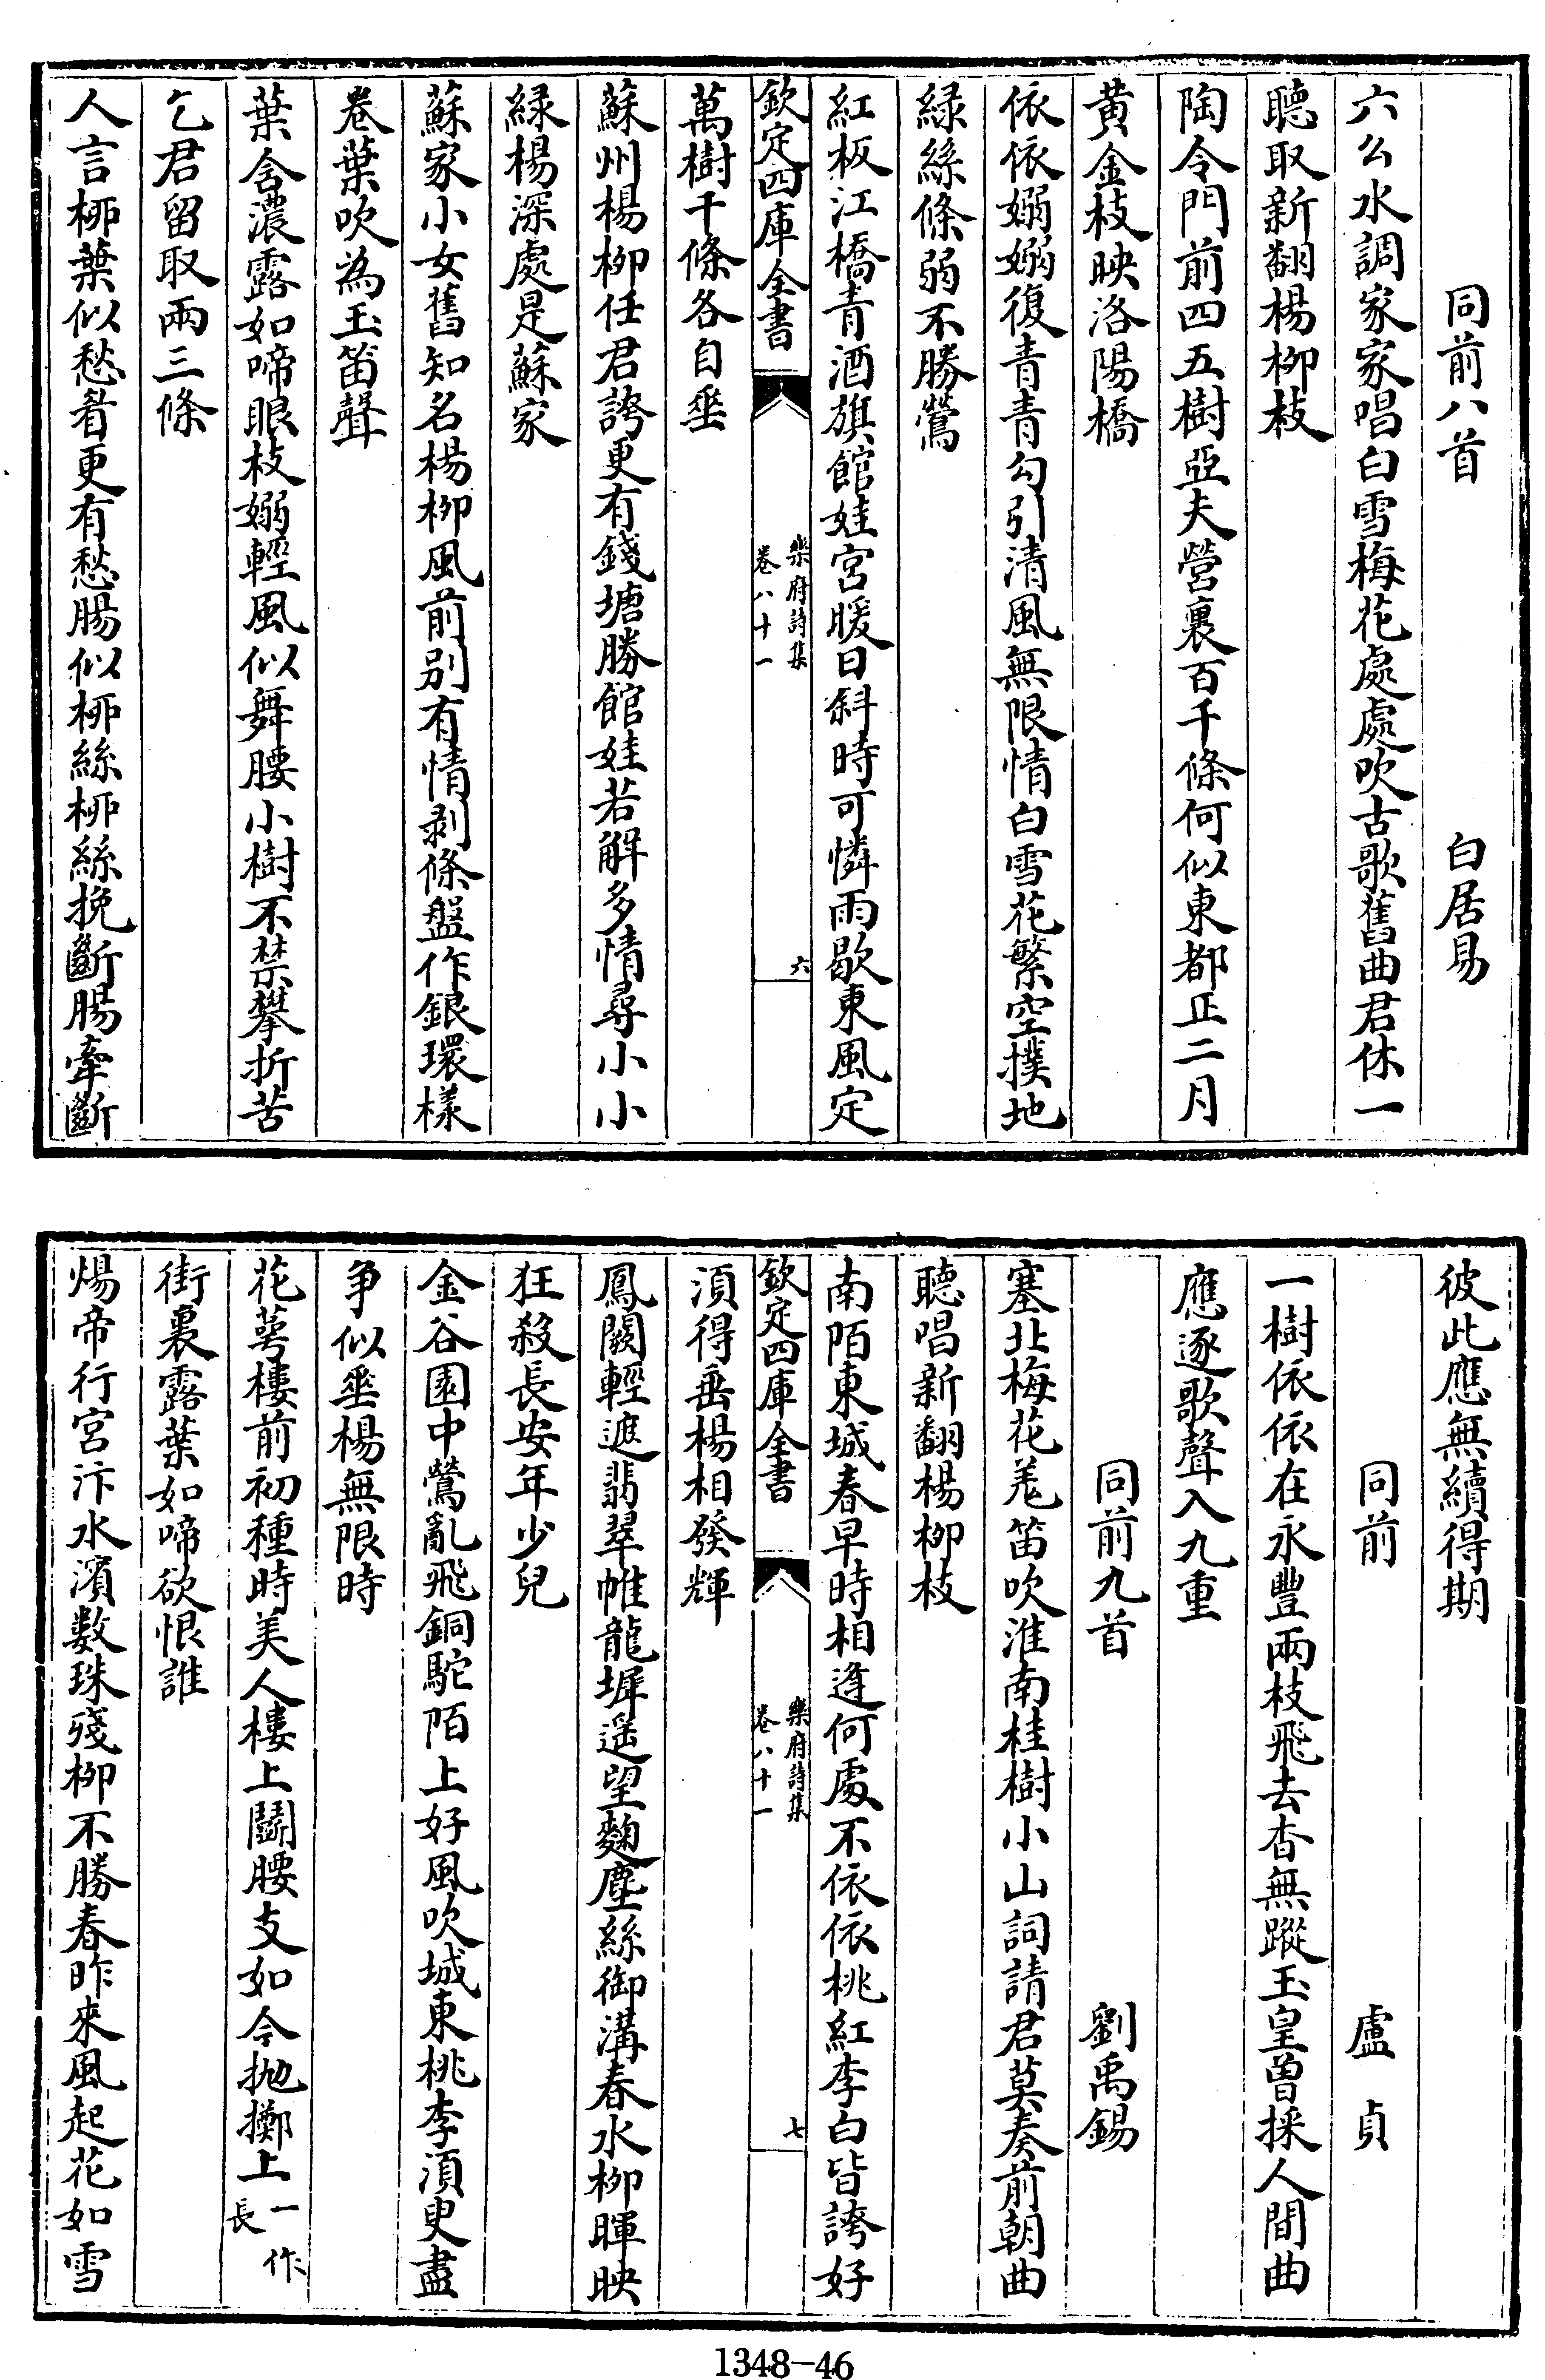 同前八首 白居易
六幺水調家家唱白雪梅花處處吹古歌舊曲君休一
聽取新翻楊柳枝
陶令門前四五樹亞夫營裏百千條何似東都正二月
黄金枝映洛陽橋
依依嫋嫋復青青勾引清風無限情白雪花繁空撲地
緑絲條弱不勝鶯
紅板江橋青酒旗館娃宮暖日斜時可憐雨歇東風定
欽定四庫全書 樂府詩集 卷八十一 六
萬樹千條各自垂
蘇州楊柳任君誇更有錢塘勝館娃若解多情尋小小
緑楊深處是蘇家
蘇家小女舊知名楊柳風前別有情剥條盤作銀環樣
卷葉吹為玉笛聲
葉含濃露如啼眼枝嫋輕風似舞腰小樹不禁攀折苦
乞君留取兩三條
人言桞葉似愁看更有愁腸似桞絲桞絲挽斷腸牽斷
彼此應無續得期
同前 盧貞
一樹依依在永豐兩枝飛去杳無蹤玉皇曾採人間曲
應逐歌聲入九重
同前九首 劉禹錫
塞北梅花羌笛吹淮南桂樹小山詞請君莫奏前朝曲
聽唱新翻楊柳枝
南陌東城春早時相逢何處不依依桃紅李白皆誇好
欽定四庫全書 樂府詩集 卷八十一 七
須得垂楊相發輝
鳳闕輕遮翡翠帷龍墀遥望麴塵絲御溝春水柳暉映
狂殺長安年少兒
金谷園中鶯亂飛銅駝陌上好風吹城東桃李須臾盡
争似垂楊無限時
花萼樓前初種時美人樓上鬭腰支如今抛擲上一作長
街裏露葉如啼欲恨誰
煬帝行宮汴水濱数珠殘柳不勝春昨來風起花如雪
1348-46